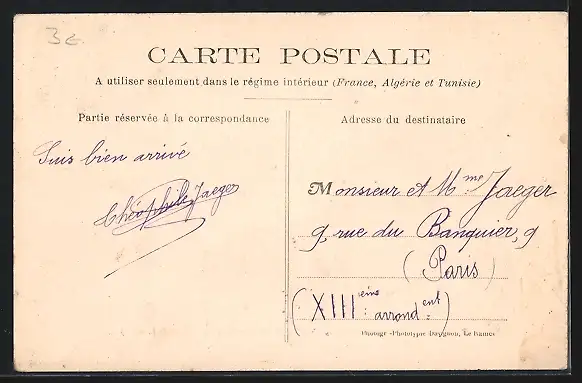 3€
CARTE POSTALE
A utiliser seulement dans le régime intérieur (France, Algérie et Tunisie)
Partie réservée à la correspondance
Adresse du destinataire
Suis bien arrivé
Théophile Jaeger
Monsieur et Mme Jaeger
9, rue du Banquier, 9
(Paris)
(XIIIeme arrondent)
Photogr-Phototypie Le Rameé